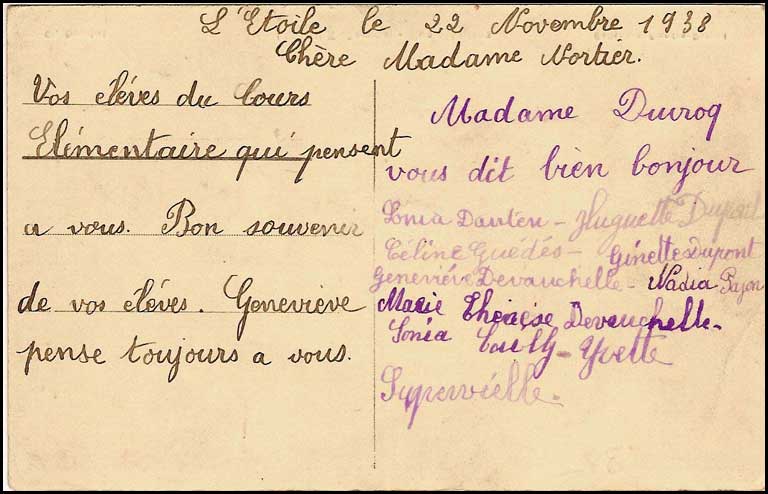 L'Etoile le 22 Novembre 1938
Chère Madame Nortier.
Vos éléves du Cours
Elémentaire qui pensent
a vous. Bon souvenir
de vos éléves. Geneviève
pense toujours a vous.
Madame Ducroq
vous dit bien bonjour
Sonia Danten - Huguette Dupont
Céline Guédés - Ginette Dupont
Geneviéve Devauchelle - Nadia Pajon
Marie Thérèse Devauchelle.
Sonia - Yvette
Supervielle.